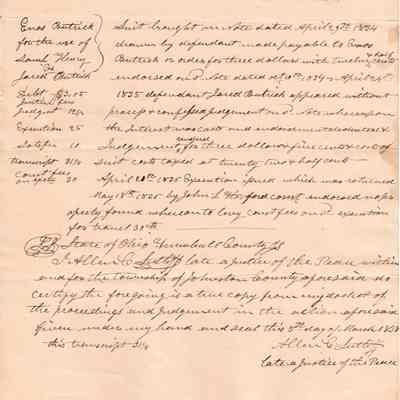 Enos Buttrick
for the use of
Saml Henry
vs
Jared Buttrick
Debt $3.05
Justice fees
Judgment
Execution 25
Satisfac 10
transcript 31¼
Const fees
on exec 30
Suit brought on Note dated April 29th 1834
drawn by defendant made payable to Enos
Buttrick or order for three dollars with twelve & half cents
endorsed on Note dated 1834 April 25th
1835 defendant Jared Buttrick appeared without
process & confessed judgement on Note whereupon
the Interest was cast and endorsement
Judgement for three dollars five cents & cost of
Suit costs taxed at twenty two & half cents
April 1835 Execution issued which was returned
May 18th 1835 by John L const endorsed no prop
erty found whereon to levy const fees on execution
for travel 30cts
State of Ohio Trumbull County SS
I Allen C late a justice of the Peace within
and for the Township of Johnston County aforesaid do
certify the foregoing is a true copy from my docket of
the proceedings and Judgement in the action aforesaid
given under my hand and seal this 8th day of March 1838
this transcript 31¼
Allen C
late a Justice of the Peace